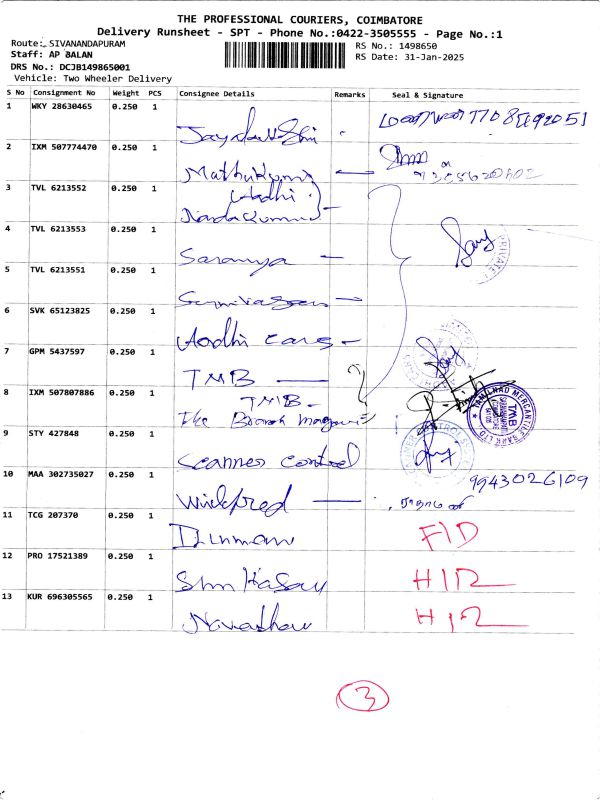 THE PROFESSIONAL COURIERS, COIMBATORE
Delivery Runsheet - SPT - Phone No.:0422-3505555 - Page No.:1
Route: SIVANANDAPURAM
Staff: AP BALAN
DRS No.: DCJB149865001
Vehicle: Two Wheeler Delivery
RS No.: 1498650
RS Date: 31-Jan-2025
S No Consignment No Weight PCS Consignee Details Remarks Seal & Signature
1 WKY 28630465 0.250 1
2 IXM 507774470 0.250 1 Mathukumar
3 TVL 6213552 0.250 1 Aadhi
Nandakumar
4 TVL 6213553 0.250 1 Saranya
5 TVL 6213551 0.250 1
6 SVK 65123825 0.250 1 Aadhi Cars
7 GPM 5437597 0.250 1 TMB
8 IXM 507807886 0.250 1 TMB
The Branch
TAMILNAD MERCANTILE BANK LTD
TMB
9 STY 427848 0.250 1 Scanner Control
10 MAA 302735027 0.250 1 Wickfred 9943026109
11 TCG 207370 0.250 1 F/D
12 PRO 17521389 0.250 1 H/R
13 KUR 696305565 0.250 1 H/R
3